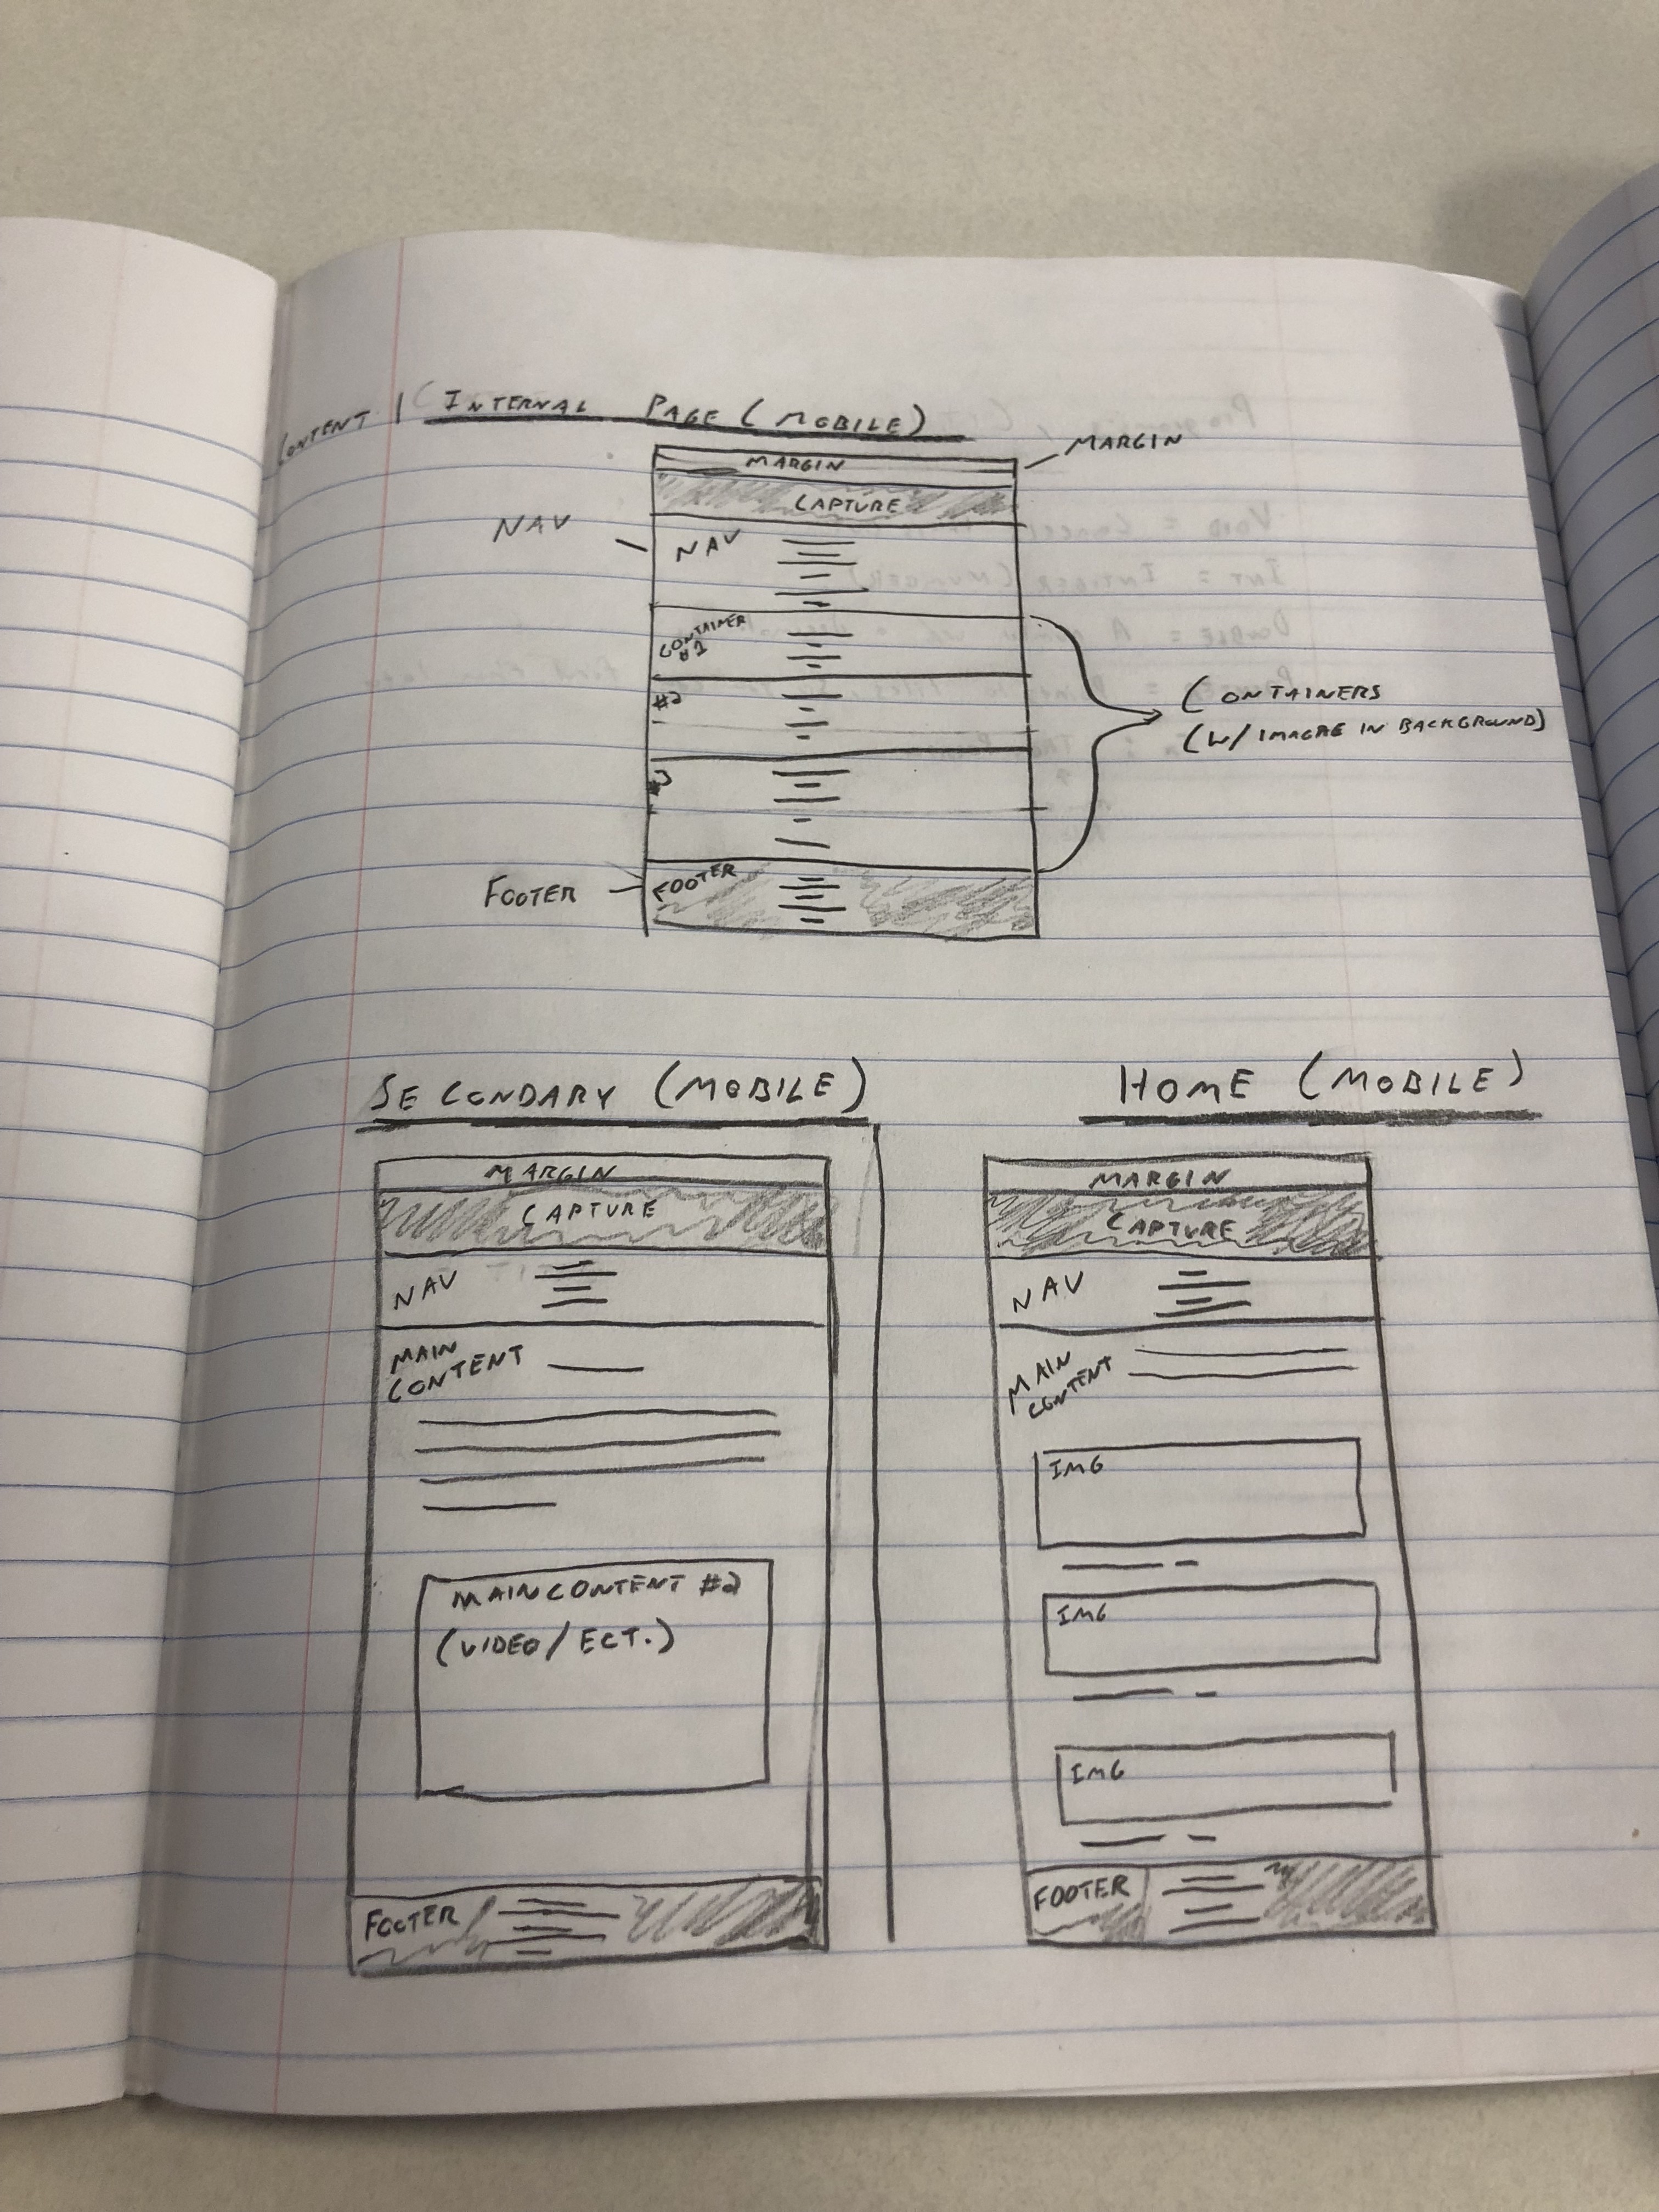 CONTENT | INTERNAL PAGE (MOBILE)
MARGIN
MARGIN
CAPTURE
NAV
NAV
CONTAINER
#1
#2
#3
CONTAINERS
(W/ IMAGRE IN BACKGROUND)
FOOTER
FOOTER
SECONDARY (MOBILE)
MARGIN
CAPTURE
NAV
MAIN
CONTENT
MAIN CONTENT #2
(VIDEO/ECT.)
FOOTER
HOME (MOBILE)
MARGIN
CAPTURE
NAV
MAIN
CONTENT
IMG
IMG
IMG
FOOTER